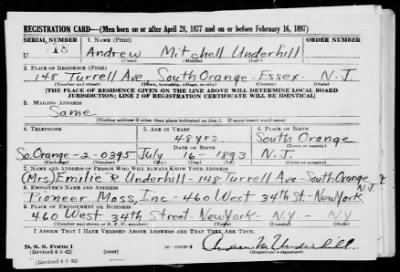 REGISTRATION CARD—(Men born on or after April 28, 1877 and on or before February 16, 1897)
SERIAL NUMBER 1. NAME (Print) ORDER NUMBER
Andrew Mitchell Underhill
(First) (Middle) (Last)
2. PLACE OF RESIDENCE (Print)
148 Turrell Ave South Orange - Essex - N.J
[THE PLACE OF RESIDENCE GIVEN ON THE LINE ABOVE WILL DETERMINE LOCAL BOARD
JURISDICTION; LINE 2 OF REGISTRATION CERTIFICATE WILL BE IDENTICAL]
3. MAILING ADDRESS
Same
[Mailing address if other than place indicated on line 2. If same insert word same]
4. TELEPHONE 5. AGE IN YEARS 6. PLACE OF BIRTH
48 yrs South Orange
DATE OF BIRTH
So. Orange - 2 - 0395 July 16 - 1893 N.J.
7. NAME AND ADDRESS OF PERSON WHO WILL ALWAYS KNOW YOUR ADDRESS
(Mrs) Emilie R. Underhill - 148 Turrell Ave - South Orange N.J.
8. EMPLOYER'S NAME AND ADDRESS
Pioneer Moss, Inc. - 460 West 34th St - New York
9. PLACE OF EMPLOYMENT OR BUSINESS
460 West 34th Street - New York - N.Y - N.Y
I AFFIRM THAT I HAVE VERIFIED ABOVE ANSWERS AND THAT THEY ARE TRUE.
D. S. S. Form 1
(Revised 4-1-42)
Andrew M. Underhill